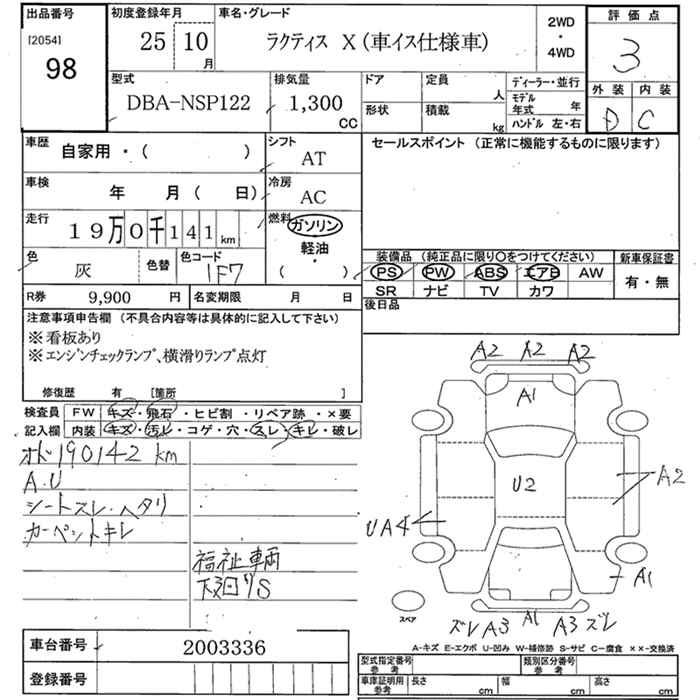 出品番号
[2054]
98
初度登録年月
25 10
月
車名・グレード
ラクティス X (車イス仕様車)
2WD
・
4WD
評価点
3
外装 内装
D C
型式
DBA-NSP122
排気量
1,300
CC
ドア
形状
定員
人
積載
kg
ディーラー・並行
モデル年式 年
ハンドル 左・右
車歴
自家用・( )
シフト
AT
セールスポイント (正常に機能するものに限ります)
車検
年 月( 日)
冷房
AC
走行
19万0千141km
燃料
ガソリン
軽油・
( )
色
灰
色替
色コード
1F7
装備品 (純正品に限り○をつけてください)
PS PW ABS エアB AW
SR ナビ TV カワ
新車保証書
有・無
R券 9,900 円
名変期限 月 日
後日品
注意事項申告欄 (不具合内容等は具体的に記入して下さい)
※看板あり
※エンジンチェックランプ、横滑りランプ点灯
修復歴 有 [箇所 ]
検査員記入欄
FW キズ・飛石・ヒビ割・リペア跡・×要
内装 キズ・汚レ・コゲ・穴・スレ・キレ・破レ
190142 km
A.U
シートスレ・ヘタリ
カーペットキレ
福祉車両
下回り/S
A2 A2 A2
A1
U2
A2
UA4
A1
ズレ A3 A1 A3 ズレ
スペア
A-キズ E-エクボ U-凹み W-補修跡 S-サビ C-腐食 ××-交換済
車台番号 2003336
登録番号
型式指定番号
参考
類別区分番号
参考
車庫証明用
参考
長さ cm
幅 cm
高さ cm